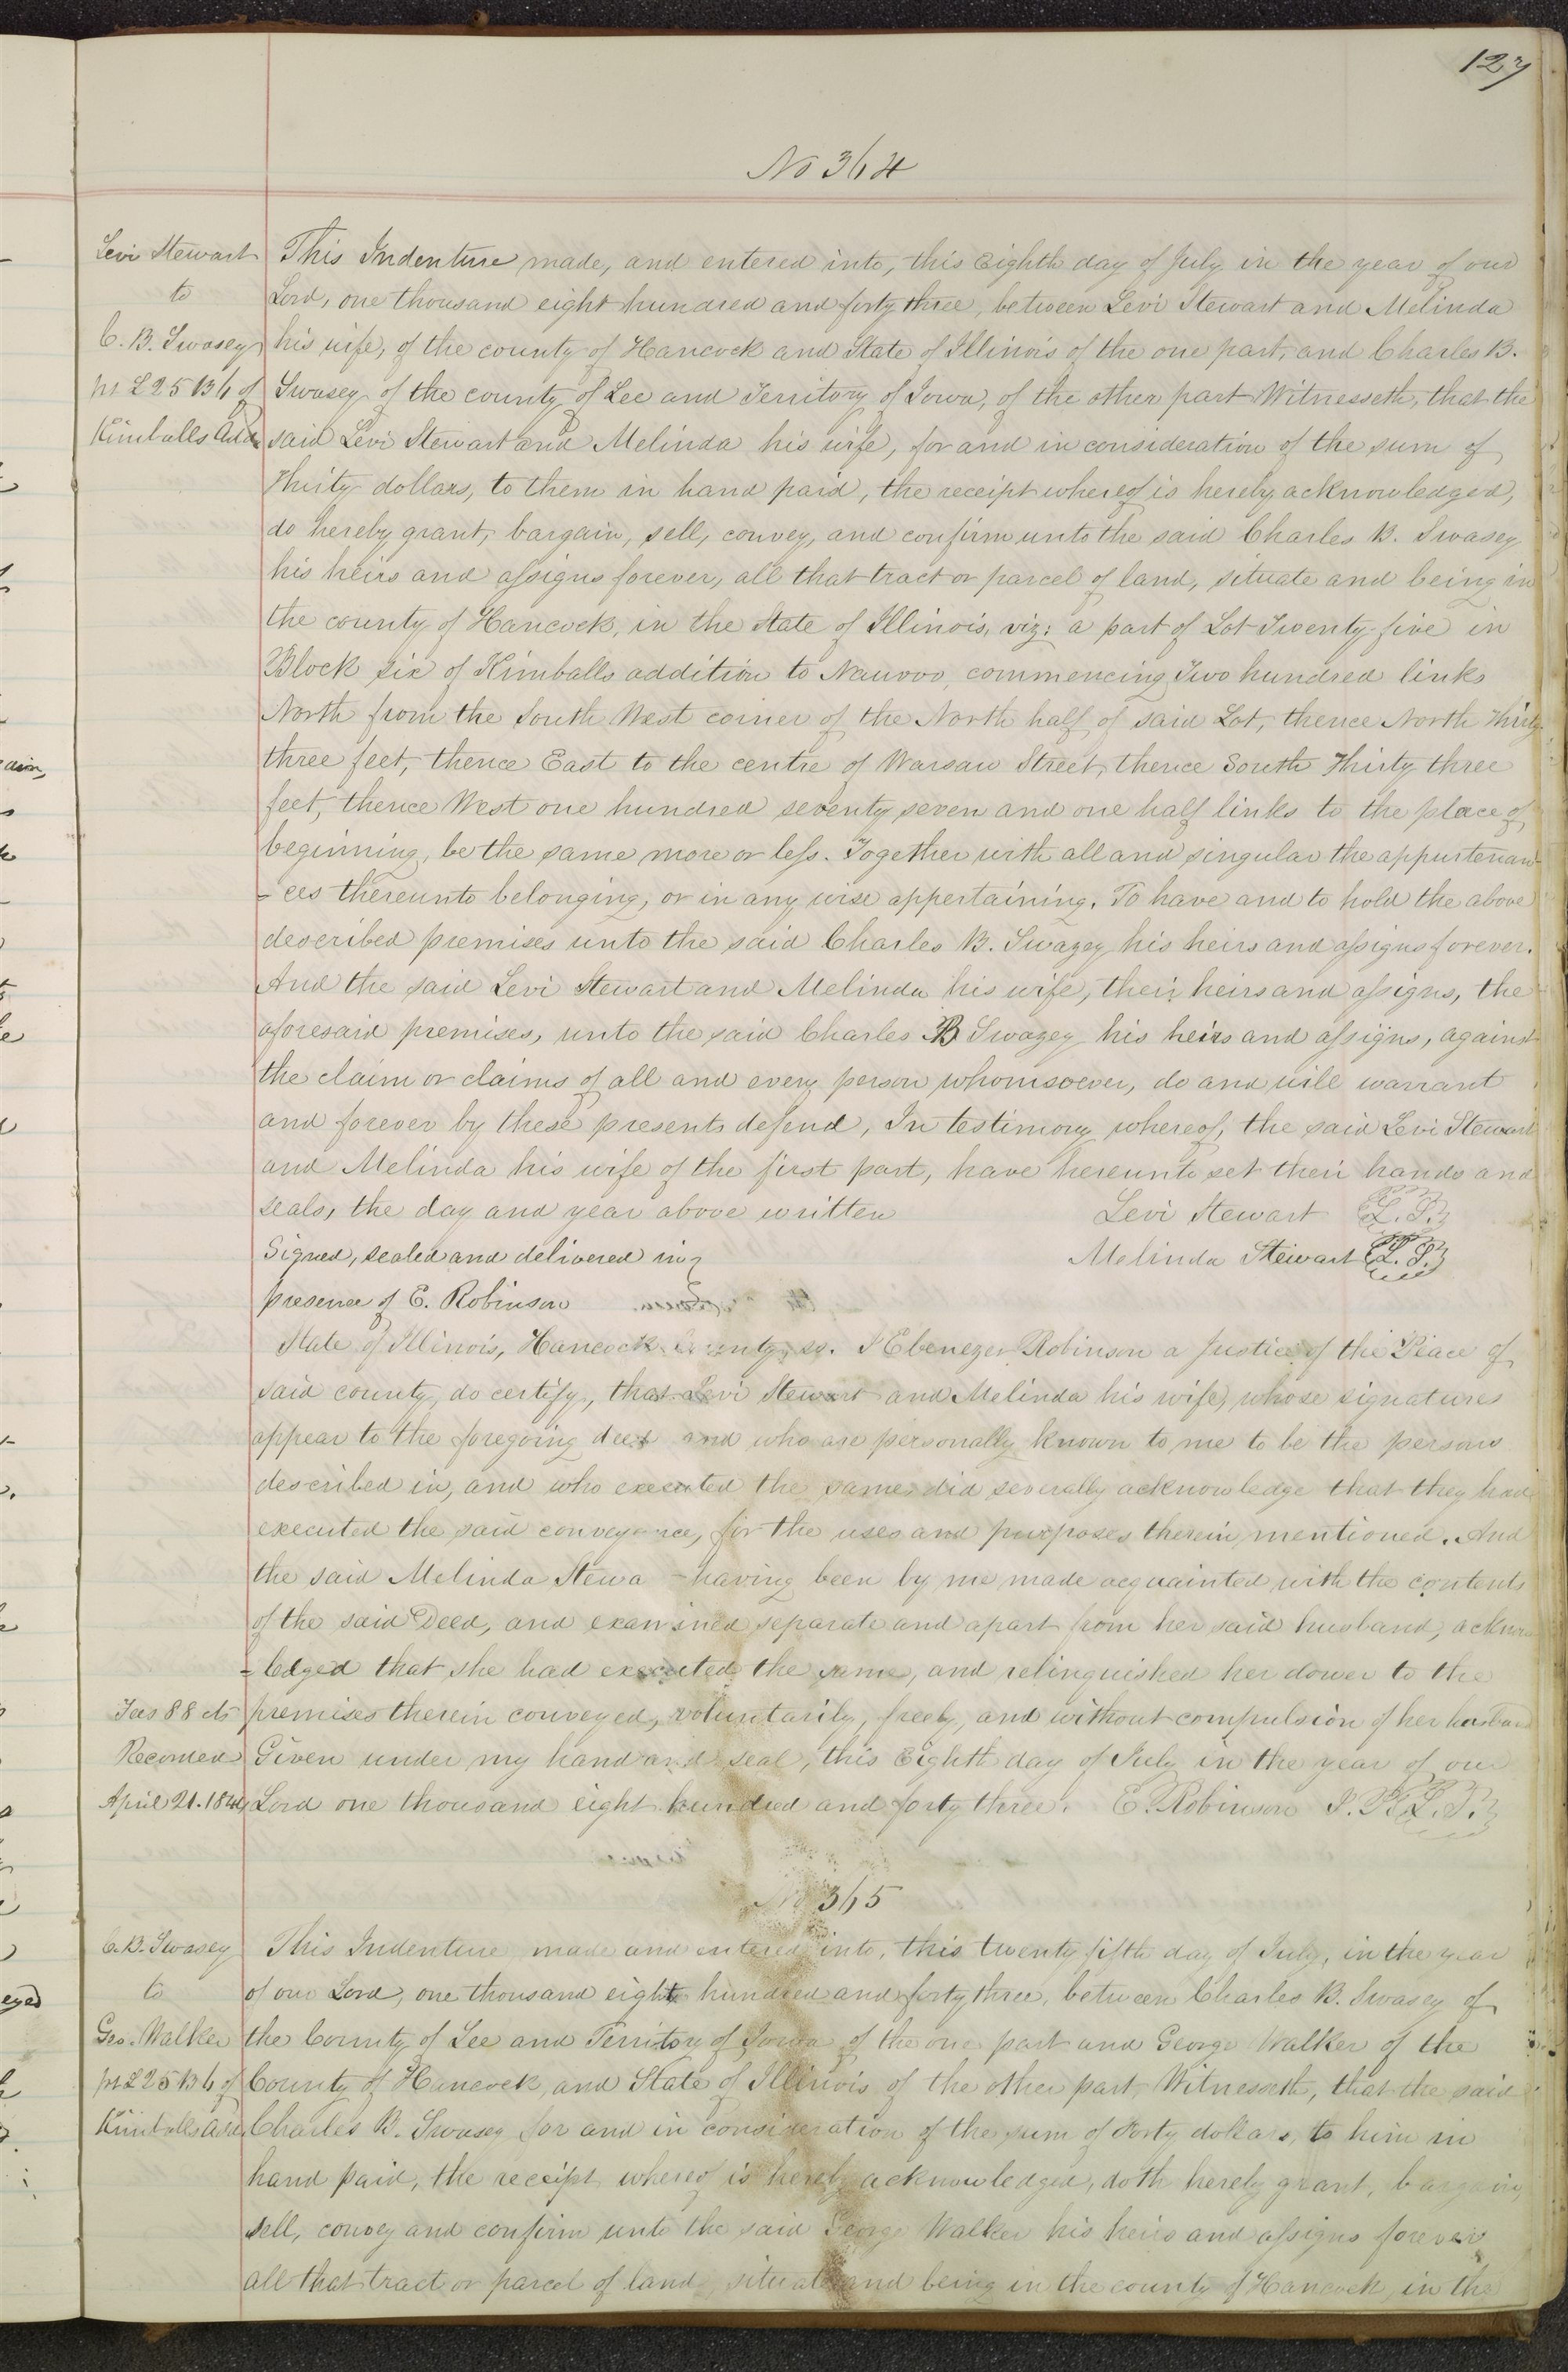 127
No 364
Levi Stewart
to
C. B. Swasey
pt L 25 B 6 of
Kimballs Add
This Indenture made, and entered into, this Eighth day of July in the year of our
Lord, one thousand eight hundred and forty three, between Levi Stewart and Melinda
his wife, of the county of Hancock and State of Illinois of the one part, and Charles B.
Swasey of the county of Lee and Territory of Iowa, of the other part Witnesseth, that the
said Levi Stewart and Melinda his wife, for and in consideration of the sum of
Thirty dollars, to them in hand paid, the receipt whereof is hereby acknowledged,
do hereby grant, bargain, sell, convey, and confirm unto the said Charles B. Swasey
his heirs and assigns forever, all that tract or parcel of land, situate and being in
the county of Hancock, in the State of Illinois, viz: a part of Lot Twenty five in
Block six of Kimballs addition to Nauvoo, commencing Two hundred links
North from the South West corner of the North half of said Lot, thence North Thirty
three feet, thence East to the centre of Warsaw Street, thence South Thirty three
feet, thence West one hundred seventy seven and one half links to the place of
beginning, be the same more or less. Together with all and singular the appurtenan-
-ces thereunto belonging, or in any wise appertaining. To have and to hold the above
described premises unto the said Charles B. Swazey his heirs and assigns forever.
And the said Levi Stewart and Melinda his wife, their heirs and assigns, the
aforesaid premises, unto the said Charles B Swazey his heirs and assigns, against
the claim or claims of all and every person whomsoever, do and will warrant
and forever by these presents defend, In testimony whereof, the said Levi Stewart
and Melinda his wife of the first part, have hereunto set their hands and
seals, the day and year above written Levi Stewart L. S.
Signed, sealed and delivered in Melinda Stewart L. S.
presence of E. Robinson
State of Illinois, Hancock County, ss. I Ebenezer Robinson a Justice of the Peace of
said county, do certify, that Levi Stewart and Melinda his wife, whose signatures
appear to the foregoing deed and who are personally known to me to be the persons
described in, and who executed the same, did severally acknowledge that they had
executed the said conveyance, for the uses and purposes therein mentioned. And
the said Melinda Stewa having been by me made acquainted with the contents
of the said Deed, and examined separate and apart from her said husband, acknow
=ledged that she had executed the same, and relinquished her dower to the
premises therein conveyed, voluntarily, freely, and without compulsion of her husband
Given under my hand and seal, this Eighth day of July in the year of our
Lord one thousand eight hundred and forty three. E. Robinson J. P. L. S.
Fees 88 cts
Recorded
April 21. 1844
No 365
C. B. Swasey
to
Geo. Walker
pt L 25 B 6 of
Kimballs Add
This Indenture made and entered into, this twenty fifth day of July, in the year
of our Lord, one thousand eight hundred and forty three, between Charles B. Swasey of
the County of Lee and Territory of Iowa of the one part and George Walker of the
County of Hancock, and State of Illinois of the other part Witnesseth, that the said
Charles B. Swasey for and in consideration of the sum of Forty dollars, to him in
hand paid, the receipt whereof is hereby acknowledged, doth hereby grant, bargain,
sell, convey and confirm unto the said George Walker his heirs and assigns forever
all that tract or parcel of land, situate and being in the county of Hancock, in the